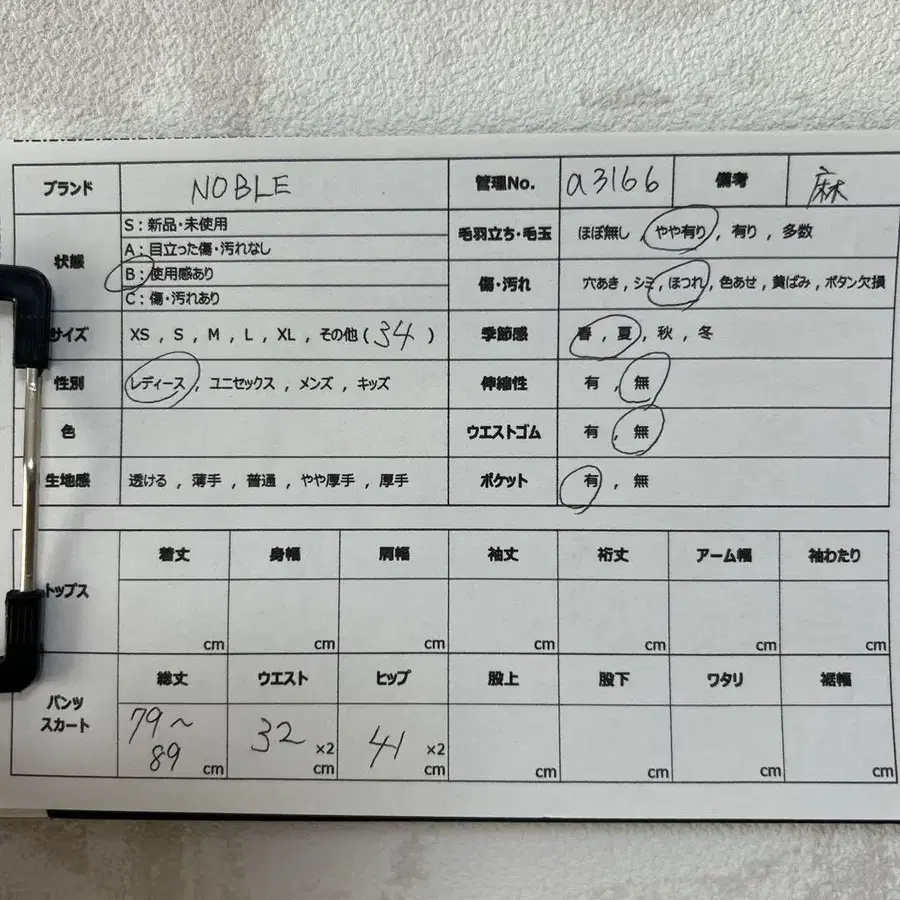 ブランド NOBLE 管理No. a3166 備考 麻
状態 S:新品・未使用
A:目立った傷・汚れなし
B:使用感あり
C:傷・汚れあり
毛羽立ち・毛玉 ほぼ無し , やや有り , 有り , 多数
傷・汚れ 穴あき , シミ , ほつれ , 色あせ , 黄ばみ , ボタン欠損
サイズ XS , S , M , L , XL , その他 ( 34 ) 季節感 春 , 夏 , 秋 , 冬
性別 レディース , ユニセックス , メンズ , キッズ 伸縮性 有 , 無
色 ウエストゴム 有 , 無
生地感 透ける , 薄手 , 普通 , やや厚手 , 厚手 ポケット 有 , 無
トップス 着丈 身幅 肩幅 袖丈 裄丈 アーム幅 袖わたり
cm cm cm cm cm cm cm
パンツ
スカート
総丈 ウエスト ヒップ 股上 股下 ワタリ 裾幅
79〜
89 cm 32 ×2 cm 41 ×2 cm cm cm cm cm